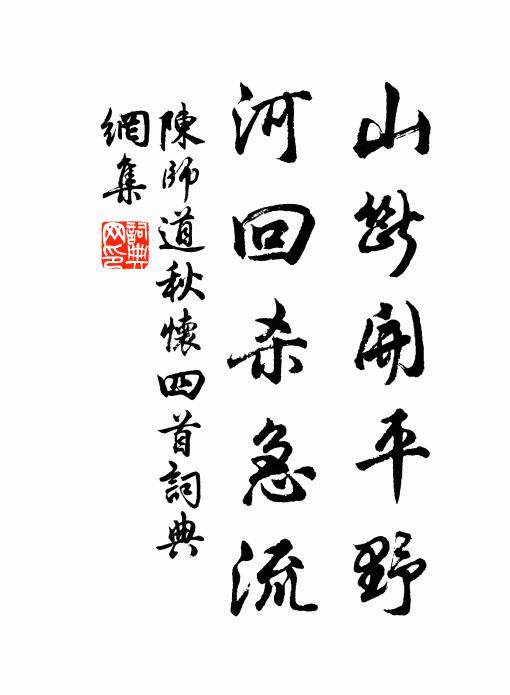 山斷開平野
河回杀急流
陳師道秋懷四首詞典
網集
詞典
网印